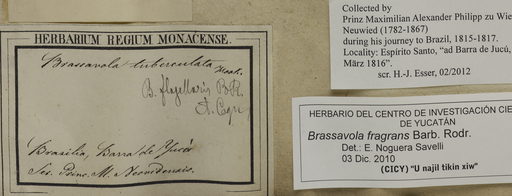 HERBARIUM REGIUM MONACENSE.
Brassavola tuberculata Hook.
B. flagellaris B.R.
A. Cogn.
Brasilia, Barra de Jucú
Ser. Princ. M. Neovidensis.
Collected by
Prinz Maximilian Alexander Philipp zu Wie
Neuwied (1782-1867)
during his journey to Brazil, 1815-1817.
Locality: Espírito Santo, "ad Barra de Jucú,
März 1816".
scr. H.-J. Esser, 02/2012
HERBARIO DEL CENTRO DE INVESTIGACIÓN CIE
DE YUCATÁN
Brassavola fragrans Barb. Rodr.
Det.: E. Noguera Savelli
03 Dic. 2010
(CICY) "U najil tikin xiw"